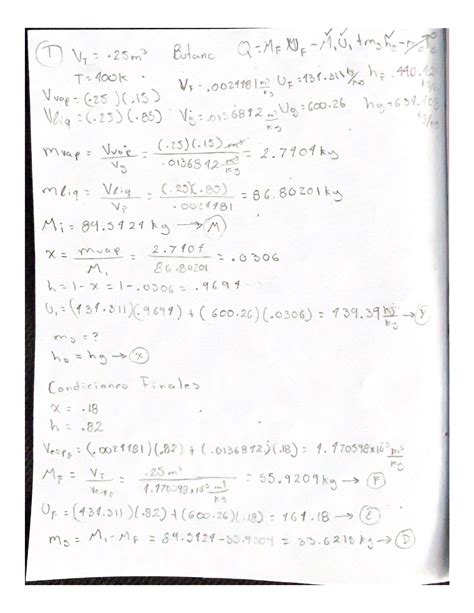 ① V_T = .25m³ Butano Q = M_F U_F − M_1 U_1 + m_s h_s −
T = 400k V_F = .0024481 m³/kg U_F = 434.311 h_F = 440.42
V_vap = (.25)(.15)
V_liq = (.25)(.85) V_g = .0136842 m³/kg U_g = 600.26 h_g =
m_vap = V_vap / V_g = (.25)(.15) m³ / .0136842 m³/kg = 2.7404 kg
m_liq = V_liq / V_F = (.25)(.85) / .0024481 = 86.80201 kg
M_i = 89.5424 kg → Ⓜ
x = m_vap / M_1 = 2.7404 / 86.80201 = .0306
h = 1 − x = 1 − .0306 = .9694
U_1 = (434.311)(.9694) + (600.26)(.0306) = 439.39 kJ/kg →
m_s = ?
h_s = h_g → Ⓧ
Condiciones Finales
x = .18
h = .82
V_espF = (.0024481)(.82) + (.0136842)(.18) = 4.470598x10⁻³ m³/kg
M_F = V_T / V_espF = .25m³ / 4.470598x10⁻³ m³/kg = 55.9209 kg → Ⓕ
U_F = (434.311)(.82) + (600.26)(.18) = 464.18 → Ⓔ
m_s = M_1 − M_F = 89.5424 − 55.9209 = 33.6215 kg → Ⓓ